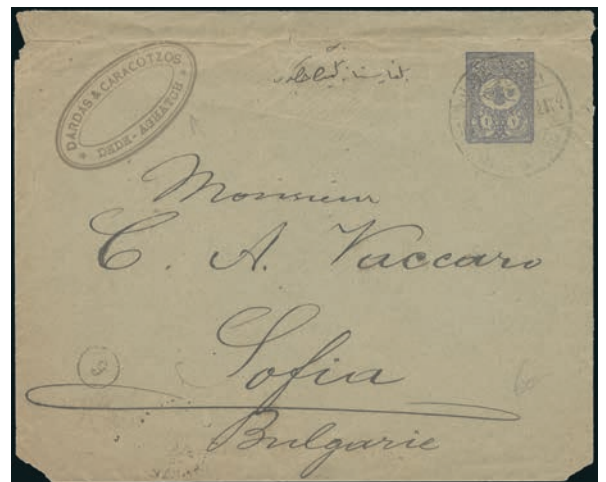 DARDAS & CARACOTZOS
DEDE-AGHATCH
Monsieur
C. A. Vaccaro
Sofia
Bulgarie